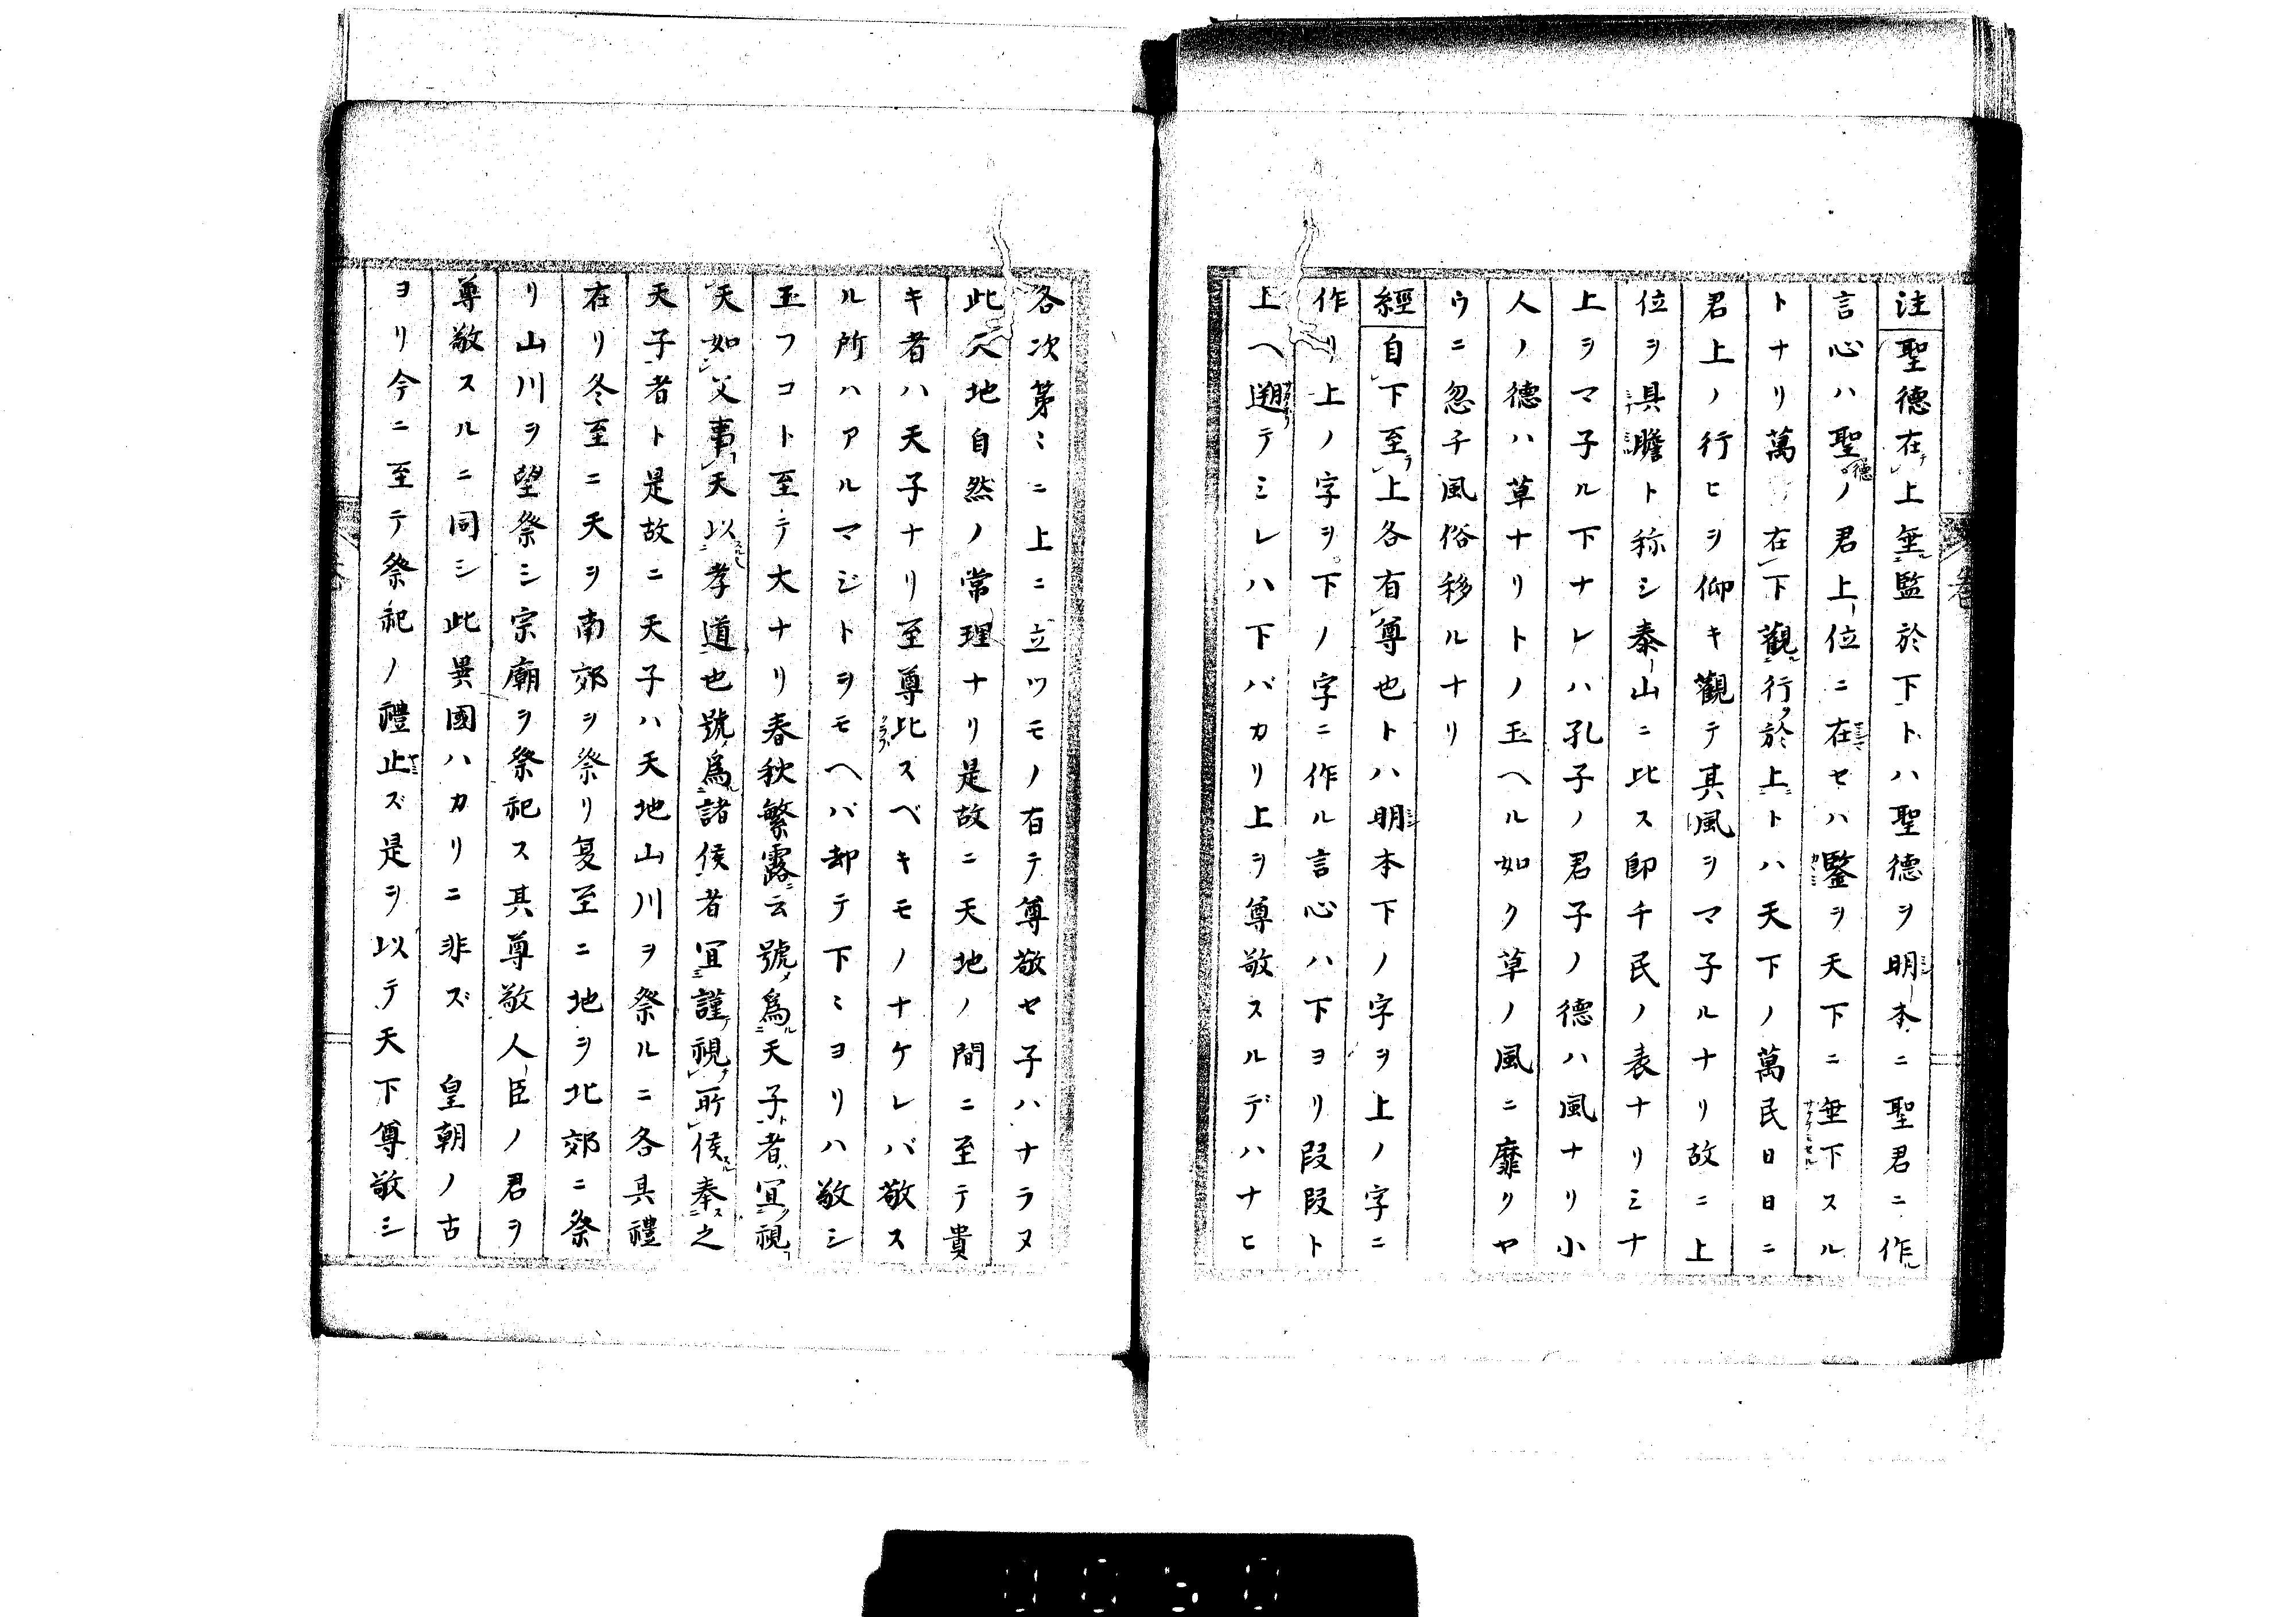 注聖德在上垂監於下トハ聖德ヲ明本ニ聖君ニ作ル
言心ハ聖德ノ君上位ニ在セハ鑒ヲ天下ニ垂下スル
トナリ萬在下觀行於上トハ天下ノ萬民日日ニ
君上ノ行ヒヲ仰キ觀テ其風ヲマ子ルナリ故ニ上
位ヲ具瞻ト称シ泰山ニ比ス即千民ノ表ナリミナ
上ヲマ子ル下ナレハ孔子ノ君子ノ德ハ風ナリ小
人ノ德ハ草ナリトノ玉ヘル如ク草ノ風ニ靡クヤ
ウニ忽チ風俗移ルナリ
經自下至上各有尊也トハ明本下ノ字ヲ上ノ字ニ
作リ上ノ字ヲ下ノ字ニ作ル言心ハ下ヨリ段段ト
上ヘ遡テミレハ下バカリ上ヲ尊敬スルデハナヒ
各次第ミニ上ニ立ツモノ有テ尊敬セ子ハナラヌ
此天地自然ノ常理ナリ是故ニ天地ノ間ニ至テ貴
キ者ハ天子ナリ至尊比スベキモノナケレバ敬ス
ル所ハアルマジトヲモヘバ却テ下ミヨリハ敬シ
玉フコト至テ大ナリ春秋繁露ニ云號爲天子者宜視
天如父事天以孝道也號爲諸侯者宜謹視所侯奉之
天子者ト是故ニ天子ハ天地山川ヲ祭ルニ各具禮
在リ冬至ニ天ヲ南郊ヲ祭リ夏至ニ地ヲ北郊ニ祭
リ山川ヲ望祭シ宗廟ヲ祭祀ス其尊敬人臣ノ君ヲ
尊敬スルニ同シ此異國ハカリニ非ズ 皇朝ノ古
ヨリ今ニ至テ祭祀ノ禮止ズ是ヲ以テ天下尊敬シ